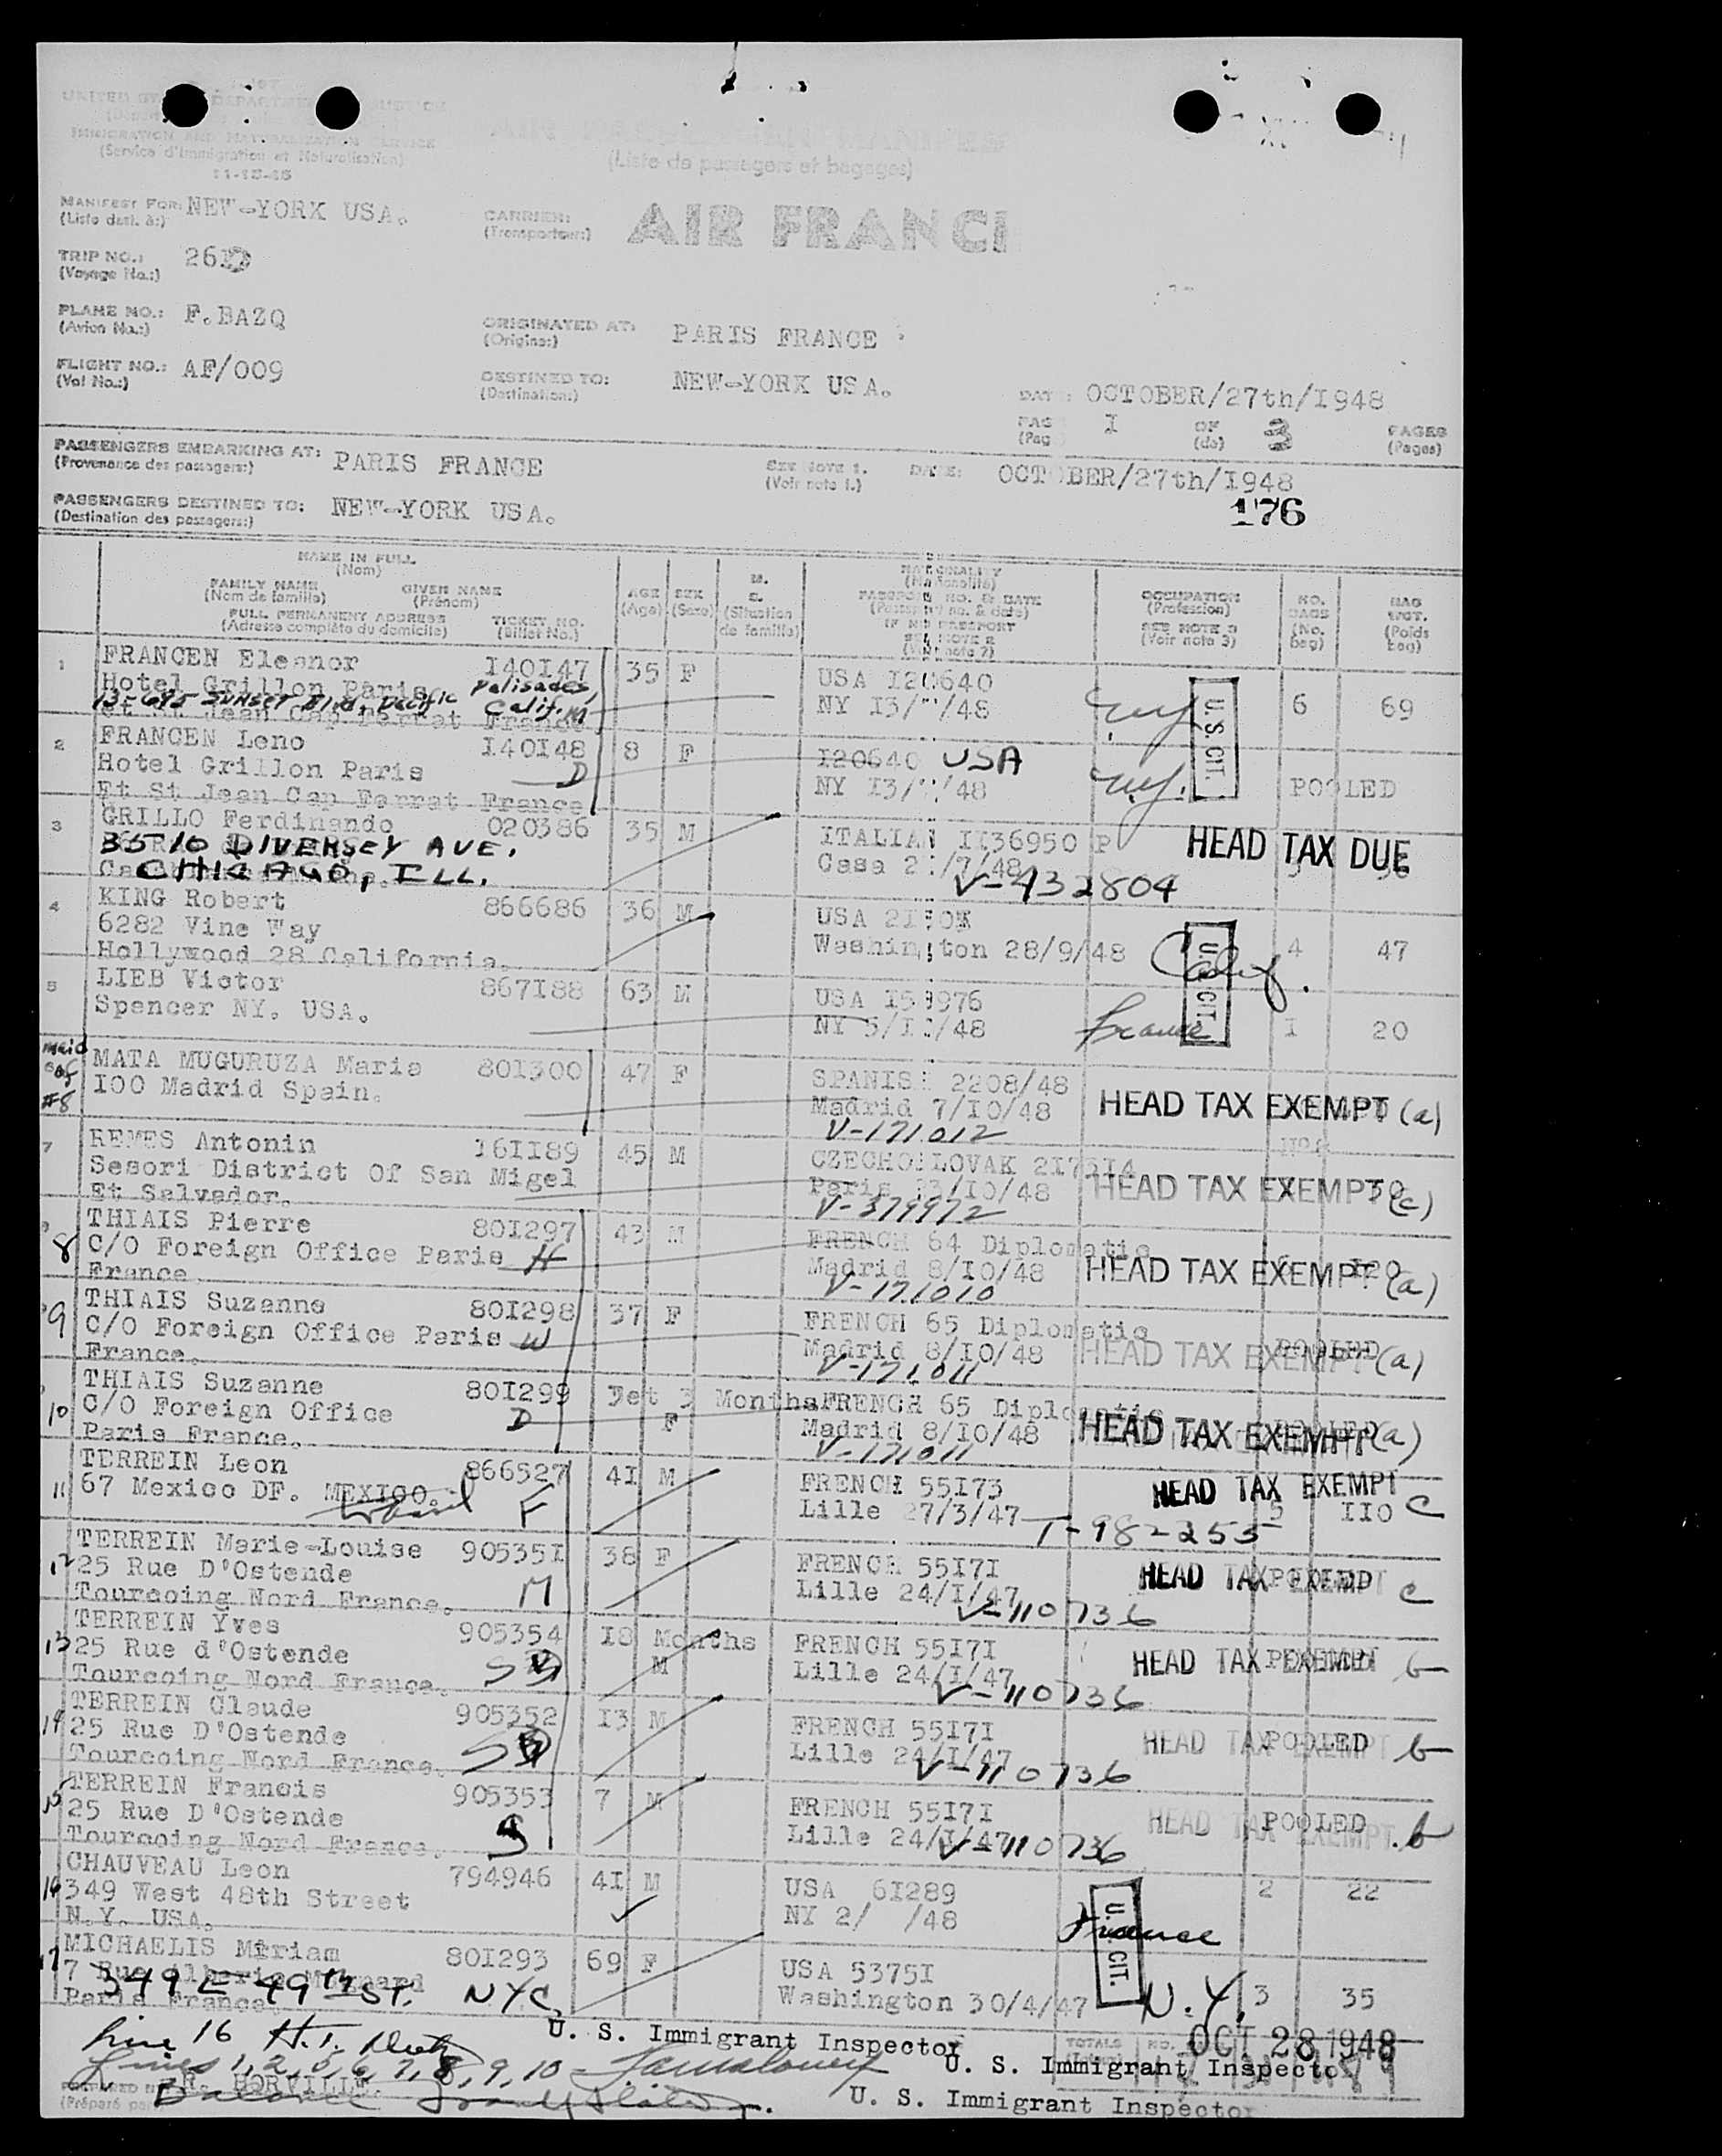 (Service d'Immigration et Naturalisation)
11-15-45
(Liste de passagers et bagages)
MANIFEST FOR: NEW-YORK USA.
(Liste dest. à:)
CARRIER: AIR FRANC
(Transporteur:)
TRIP NO.:
(Voyage No.:)
PLANE NO.: F.BAZQ
(Avion No.:)
ORIGINATED AT: PARIS FRANCE
(Origine:)
FLIGHT NO.: AF/009
(Vol No.:)
DESTINED TO: NEW-YORK USA.
(Destination:)
DAT : OCTOBER/27th/I948
PAG I OF 3 PAGES
(Pag (de) (Pages)
PASSENGERS EMBARKING AT: PARIS FRANCE
(Provenance des passagers:)
SEE NOTE 1. DATE: OCT BER/27th/I948
(Voir note 1.)
PASSENGERS DESTINED TO: NEW-YORK USA.
(Destination des passagers:)
176
NAME IN FULL
(Nom)
FAMILY NAME GIVEN NAME
(Nom de famille) (Prénom)
FULL PERMANENT ADDRESS TICKET NO.
(Adresse complète du domicile) (Billet No.)
AGE SEX M. S.
(Age) (Sexe) (Situation de famille)
NATIONALITY
(Nationalité)
PASSPORT NO. & DATE
(Passeport no. & date)
OCCUPATION
(Profession)
SEE NOTE 3
(Voir note 3)
NO. BAGS
(No. bag)
BAG WGT.
(Poids bag)
1 FRANCEN Eleanor I40I47 35 F USA I20640 6 69
Hotel Grillon Paris Palisades NY I3/ /48 N.Y. U.S. CIT.
13-695 SUNSET Blvd. Pacific Calif. M
et St Jean Cap Ferrat France
2 FRANCEN Leno I40I48 8 F I20640 USA
Hotel Grillon Paris D NY I3/ /48 N.Y. POOLED
Et St Jean Cap Ferrat France
3 GRILLO Ferdinando 020386 35 M ITALIAN II36950 P HEAD TAX DUE
3510 DIVERSEY AVE. Casa 2 /7/48
CHICAGO, ILL. V-432804
4 KING Robert 866686 36 M USA
6282 Vine Way Washington 28/9/48 Calif. U. CIT. 4 47
Hollywood 28 California.
5 LIEB Victor 867I88 63 M USA
Spencer NY. USA. NY 5/I /48 France I 20
maid of #8 MATA MUGURUZA Maria 80I300 47 F SPANIS 2208/48
I00 Madrid Spain. Madrid 7/I0/48 HEAD TAX EXEMPT (a)
V-171012
7 REMES Antonin I6II89 45 M CZECHOSLOVAK
Sesori District Of San Migel Paris /I0/48 HEAD TAX EXEMPT (c)
Et Salvador. V-379972
8 THIAIS Pierre 80I297 43 M FRENCH 64 Diplomatic
C/O Foreign Office Paris H Madrid 8/I0/48 HEAD TAX EXEMPT (a)
France. V-171010
9 THIAIS Suzanne 80I298 37 F FRENCH 65 Diplomatic POOLED
C/O Foreign Office Paris W Madrid 8/I0/48 HEAD TAX EXEMPT (a)
France. V-171011
10 THIAIS Suzanne 80I299 et 3 Months FRENCH 65 Diplomatic POOLED
C/O Foreign Office D F Madrid 8/I0/48 HEAD TAX EXEMPT (a)
Paris France. V-171011
11 TERREIN Leon 866527 4I M FRENCH 55I73 HEAD TAX EXEMPT
67 Mexico DF. MEXICO. F Lille 27/3/47 5 II0 C
T-982255
12 TERREIN Marie-Louise 90535I 38 F FRENCH 55I7I
25 Rue D'Ostende Lille 24/I/47 HEAD TAX EXEMPT POOLED c
Tourcoing Nord France. M V-110736
13 TERREIN Yves 905354 I8 Months FRENCH 55I7I
25 Rue d'Ostende M Lille 24/I/47 HEAD TAX EXEMPT POOLED b
Tourcoing Nord France. S V-110736
14 TERREIN Claude 905352 I3 M FRENCH 55I7I
25 Rue D'Ostende Lille 24/I/47 HEAD TAX EXEMPT POOLED b
Tourcoing Nord France. S V-110736
15 TERREIN Francis 905353 7 M FRENCH 55I7I
25 Rue D'Ostende Lille 24/I/47 HEAD TAX EXEMPT POOLED b
Tourcoing Nord France. S V-110736
16 CHAUVEAU Leon 794946 4I M USA 6I289 2 22
349 West 48th Street NY 2/ /48 France U. CIT.
N.Y. USA.
17 MICHAELIS Miriam 80I293 69 F USA 5375I
7 Rue Washington 30/4/47 N.Y. 3 35
349 E 49th ST. NYC.
Paris France.
Line 16 H.T. U. S. Immigrant Inspector TOTALS NO. OCT 28 1948
Lines 1, 2, 5, 6, 7, 8, 9, 10 U. S. Immigrant Inspecto
Balance U. S. Immigrant Inspector
(Préparé par